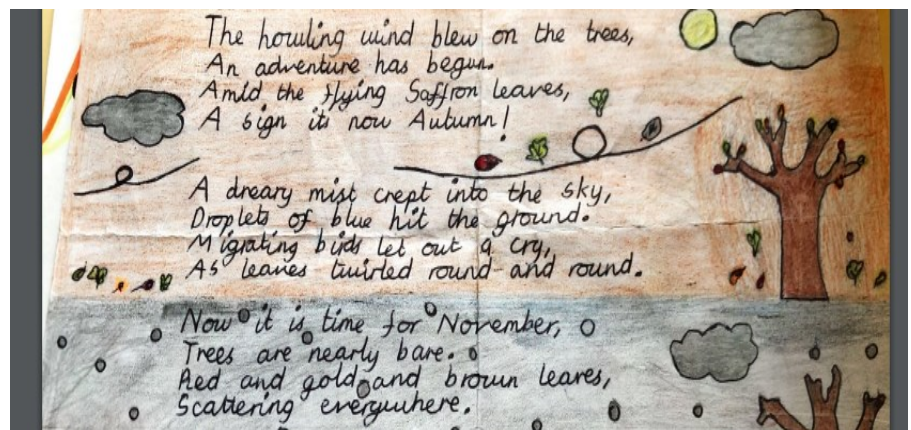 The howling wind blew on the trees,
An adventure has begun.
Amid the flying Saffron leaves,
A sign its now Autumn!
A dreary mist crept into the sky,
Droplets of blue hit the ground.
Migrating birds let out a cry,
As leaves twirled round and round.
Now it is time for November,
Trees are nearly bare.
Red and gold and brown leaves,
Scattering everywhere.